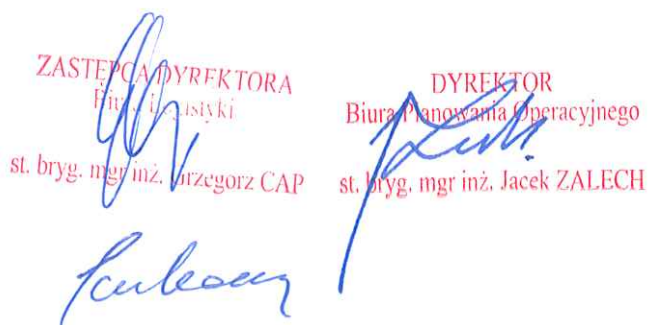 ZASTĘPCA DYREKTORA
Biura Logistyki
st. bryg. mgr inż. Grzegorz CAP
DYREKTOR
Biura Planowania Operacyjnego
st. bryg. mgr inż. Jacek ZALECH